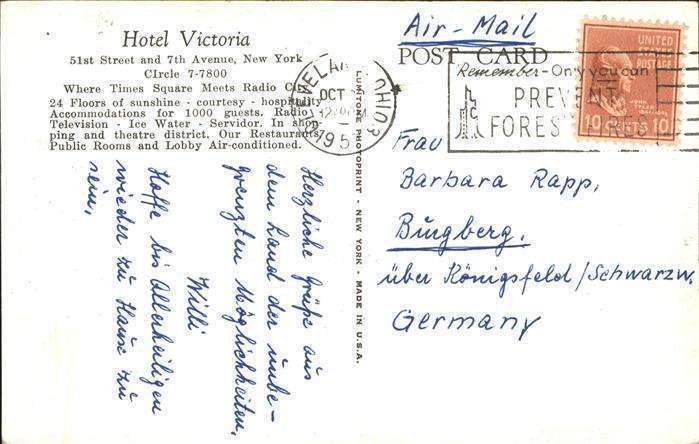 Hotel Victoria
51st Street and 7th Avenue, New York
CIrcle 7-7800
Where Times Square Meets Radio City
24 Floors of sunshine - courtesy - hospitality
Accommodations for 1000 guests. Radio
Television - Ice Water - Servidor. In shop-
ping and theatre district. Our Restaurants
Public Rooms and Lobby Air-conditioned.
Herzliche Grüße aus
dem Land der unbe-
grenzten Möglichkeiten,
Willi
Hoffe bis Allerheiligen
wieder zu Hause zu
sein.
LUMITONE PHOTOPRINT - NEW YORK - MADE IN U.S.A.
Air-Mail
POST CARD
OHIO
OCT
195
Remember - Only you can
PREVENT
FOREST
UNITED
POSTAGE
JOHN TYLER
10 CENTS 10
Frau
Barbara Rapp,
Burgberg,
über Königsfeld/Schwarzw.
Germany